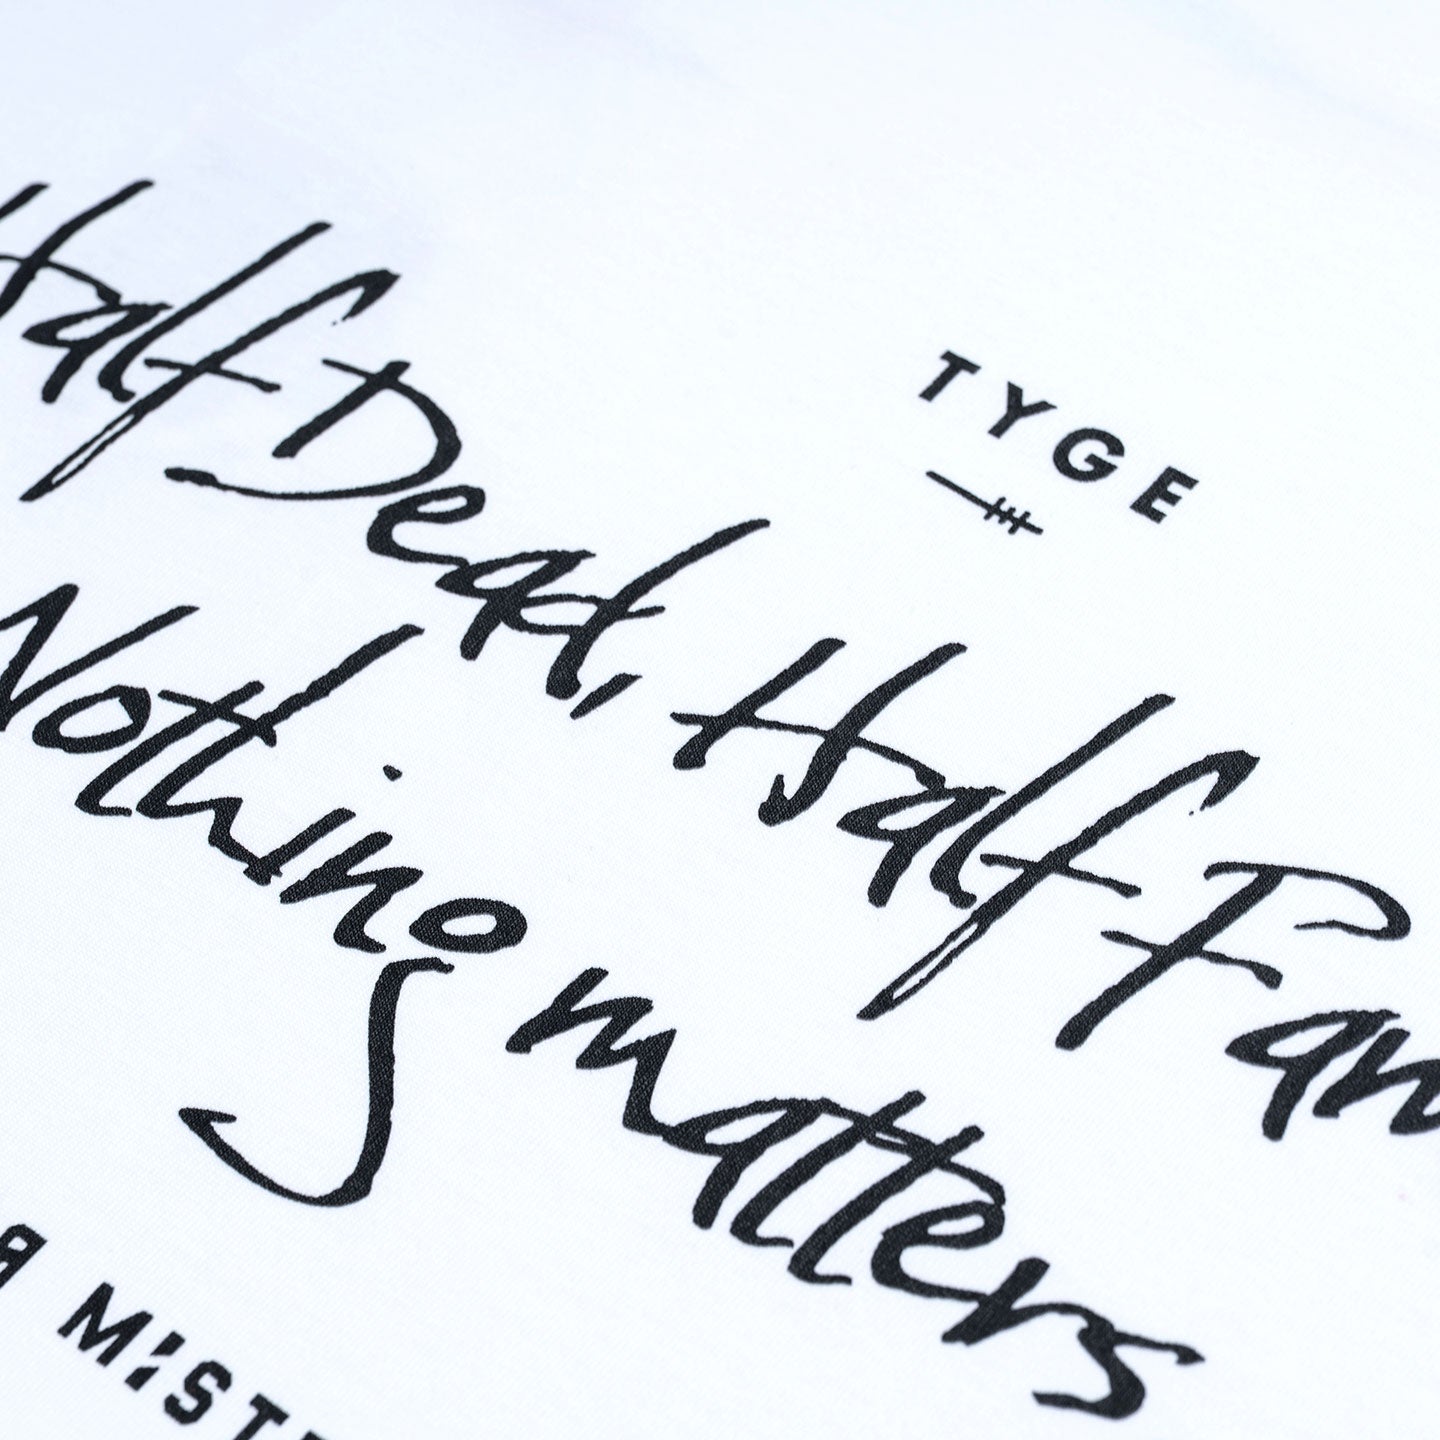 TYGE
Half Dead, Half Fam
Nothing matters